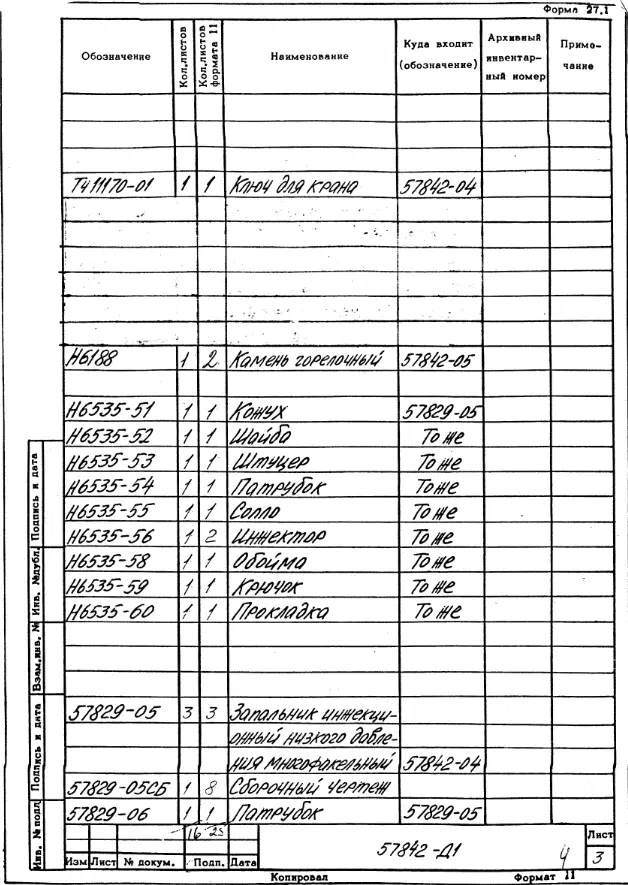 Форма 27.1
Обозначение Кол.листов Кол.листов формата 11 Наименование Куда входит (обозначение) Архивный инвентар-ный номер Приме-чание
ТЧ11170-01 1 1 Ключ для крана 57842-04
Н6188 1 2 Камень горелочный 57842-05
Н6535-51 1 1 Кожух 57829-05
Н6535-52 1 1 Шайба То же
Н6535-53 1 1 Штуцер То же
Н6535-54 1 1 Патрубок То же
Н6535-55 1 1 Сопло То же
Н6535-56 1 2 Инжектор То же
Н6535-58 1 1 Обойма То же
Н6535-59 1 1 Крючок То же
Н6535-60 1 1 Прокладка То же
57829-05 3 3 Запальник инжекци-
онный низкого давле-
ния многофакельный 57842-04
57829-05СБ 1 8 Сборочный чертеж
57829-06 1 1 Патрубок 57829-05
Подпись и дата
Инв. №дубл.
Взам.инв. №
Подпись и дата
Инв. №подл.
Изм Лист № докум. Подп. Дата
57842-Д1
4
Лист
3
Копировал Формат 11